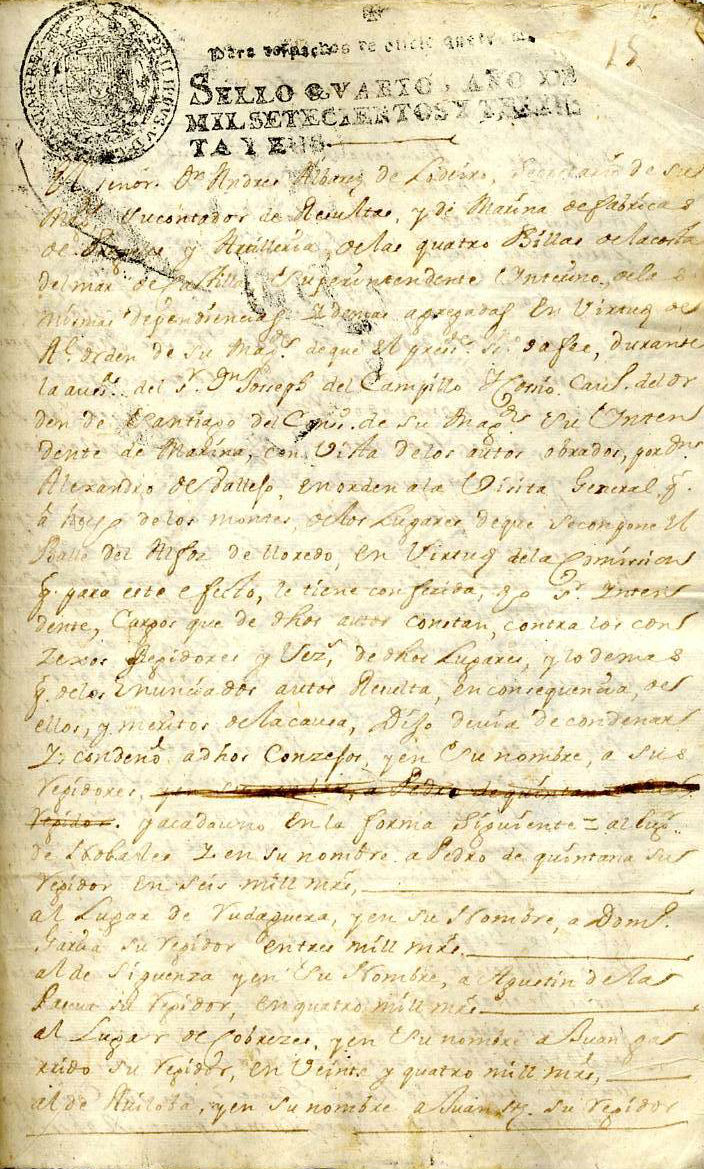 15
Para despachos de oficio quatro mrs.
SELLO QVARTO, AÑO DE
MIL SETECIENTOS Y TREIN
TA Y
El señor Dn Andres Albarez de Lodeiro, Secretario de su
Magd. Su contador de Resultas, y de Marina de fabricas
de y Artilleria, de las quatro Billas de la costa
del mar de Castilla Superintendente Interino, de las
mismas dependiencias Y demas agregadas En Virtud de
Rl. orden de su Magd. de que el presste. ss. da fee, durante
la ausa. del Sr. Dn Joseph del Campillo Y Cossio Cavo. del or
den de Santiago del Conso. de su Magd. Su Inten
dente de Marina, con Vista de los autos obrados, por Dn
Alexandro de Vallejo, en orden a la Visita General q.
a hecho de los montes, de los Lugares de que se compone el
Balle del Alfoz de lloredo, en Virtud de la Comission
q. para este efecto, le tiene conferida, dho Sr. Inten
dente, Cargos que de dhos autos constan, contra los con
Zexos Regidores y Vezs. de dhos Lugares, y lo demas
q. de los Enunciados autos Resulta, en consequencia, de
ellos, y meritos de la causa, Dijo devia de condenar
Y condenó a dhos Conzejos, y en Su nombre, a sus
regidores, a Pedro de quintana
regidor. y a cada uno En la forma Siguiente = al lugr.
de Nobales Y en su nombre a Pedro de quintana su
regidor en seis mill mrs,
al Lugar de Rudaguera, y en su Nombre, a Domo.
Garcia su regidor entres mill mrs,
al de Siguenza y en Su Nombre, a Agustin de las
su regidor, en quatro mill mrs
al Lugar de Cobrezes, y en Su nombre a Juan ga
rrido su regidor, en Veinte y quatro mill mrs,
al de , y en su nombre a Juan su regidor